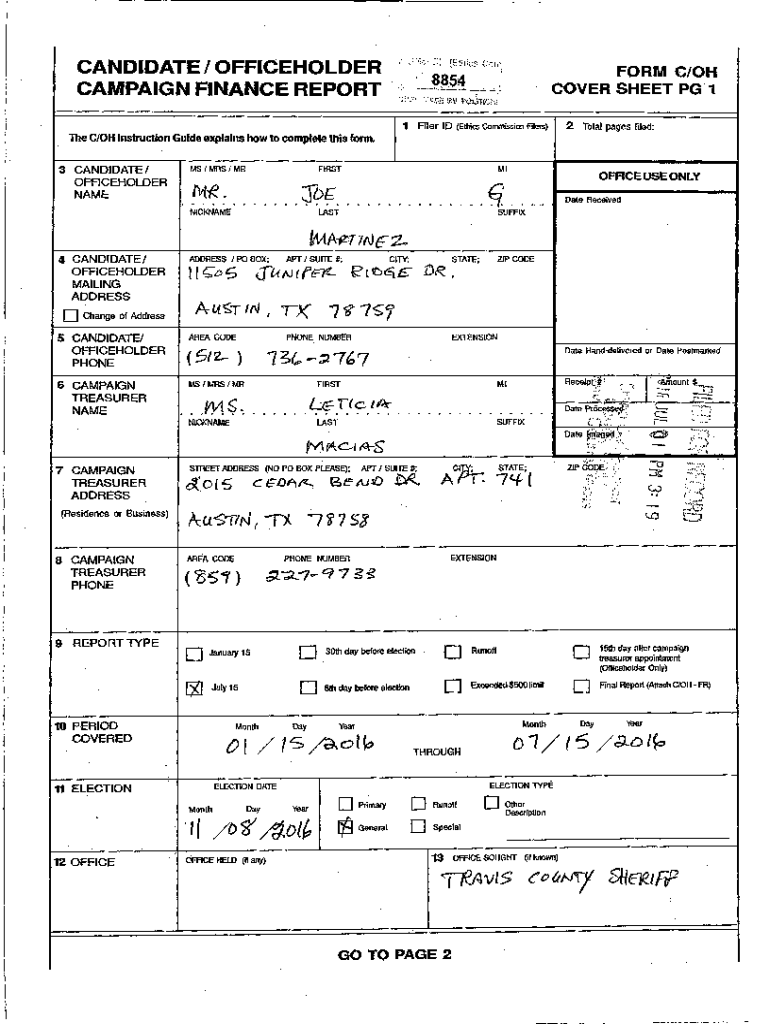 CANDIDATE / OFFICEHOLDER
CAMPAIGN FINANCE REPORT
8854
FORM C/OH
COVER SHEET PG 1
The C/OH Instruction Guide explains how to complete this form.
1 Filer ID (Ethics Commission Filers)
2 Total pages filed:
3 CANDIDATE / OFFICEHOLDER NAME
MS / MRS / MR FIRST MI
MR. JOE G
NICKNAME LAST SUFFIX
MARTINEZ
OFFICE USE ONLY
Date Received
4 CANDIDATE / OFFICEHOLDER MAILING ADDRESS
Change of Address
ADDRESS / PO BOX; APT / SUITE #; CITY; STATE; ZIP CODE
11505 JUNIPER RIDGE DR.
AUSTIN, TX 78759
5 CANDIDATE/ OFFICEHOLDER PHONE
AREA CODE PHONE NUMBER EXTENSION
(512) 736-2767
Date Hand-delivered or Date Postmarked
6 CAMPAIGN TREASURER NAME
MS / MRS / MR FIRST MI
MS. LETICIA
NICKNAME LAST SUFFIX
MACIAS
Receipt # Amount $
Date Processed
Date Imaged
7 CAMPAIGN TREASURER ADDRESS
(Residence or Business)
STREET ADDRESS (NO PO BOX PLEASE); APT / SUITE #; CITY; STATE; ZIP CODE
2015 CEDAR BEND DR. APT. 741
AUSTIN, TX 78758
PM 3:19
8 CAMPAIGN TREASURER PHONE
AREA CODE PHONE NUMBER EXTENSION
(859) 227-9733
9 REPORT TYPE
January 15 30th day before election Runoff 15th day after campaign treasurer appointment (Officeholder Only)
July 15 8th day before election Exceeded $500 limit Final Report (Attach C/OH - FR)
10 PERIOD COVERED
Month Day Year
01 / 15 / 2016
THROUGH
Month Day Year
07 / 15 / 2016
11 ELECTION
ELECTION DATE
Month Day Year
11 / 08 / 2016
ELECTION TYPE
Primary Runoff Other Description
General Special
12 OFFICE
OFFICE HELD (if any)
13 OFFICE SOUGHT (if known)
TRAVIS COUNTY SHERIFF
GO TO PAGE 2